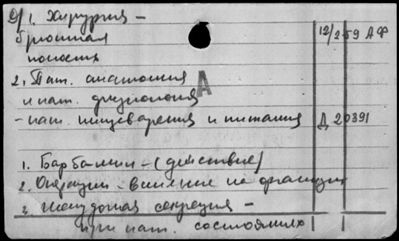 1. Хирургия -
брюшная
полости
12/2-59 АФ
2. Пат. анатомия
А
и пат. физиология
- пат. пищеварения и питания
Д 20391
1. Барбамил - (действие)
2. Операции - влияние на
2. Желудочная секреция -
при пат. состояниях